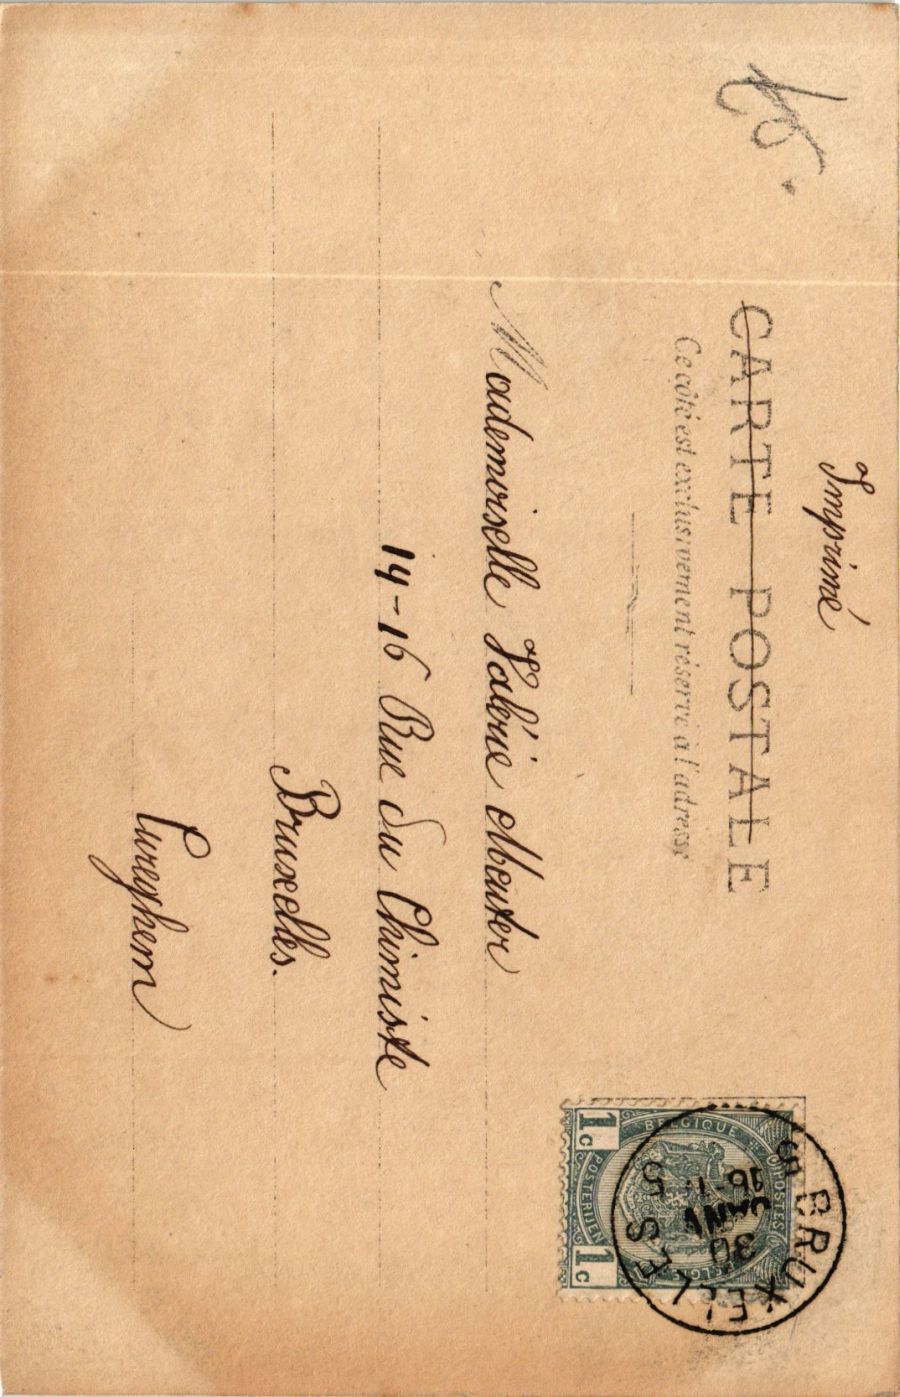 Imprimé
CARTE POSTALE
Ce côté est exclusivement réservé à l'adresse
Mademoiselle Valérie
14-16 Rue du Chimiste
Bruxelles.
Cureghem
BELGIQUE
POSTES
POSTERIJEN
1c 1c
BRUXELLES 5
30
JANV